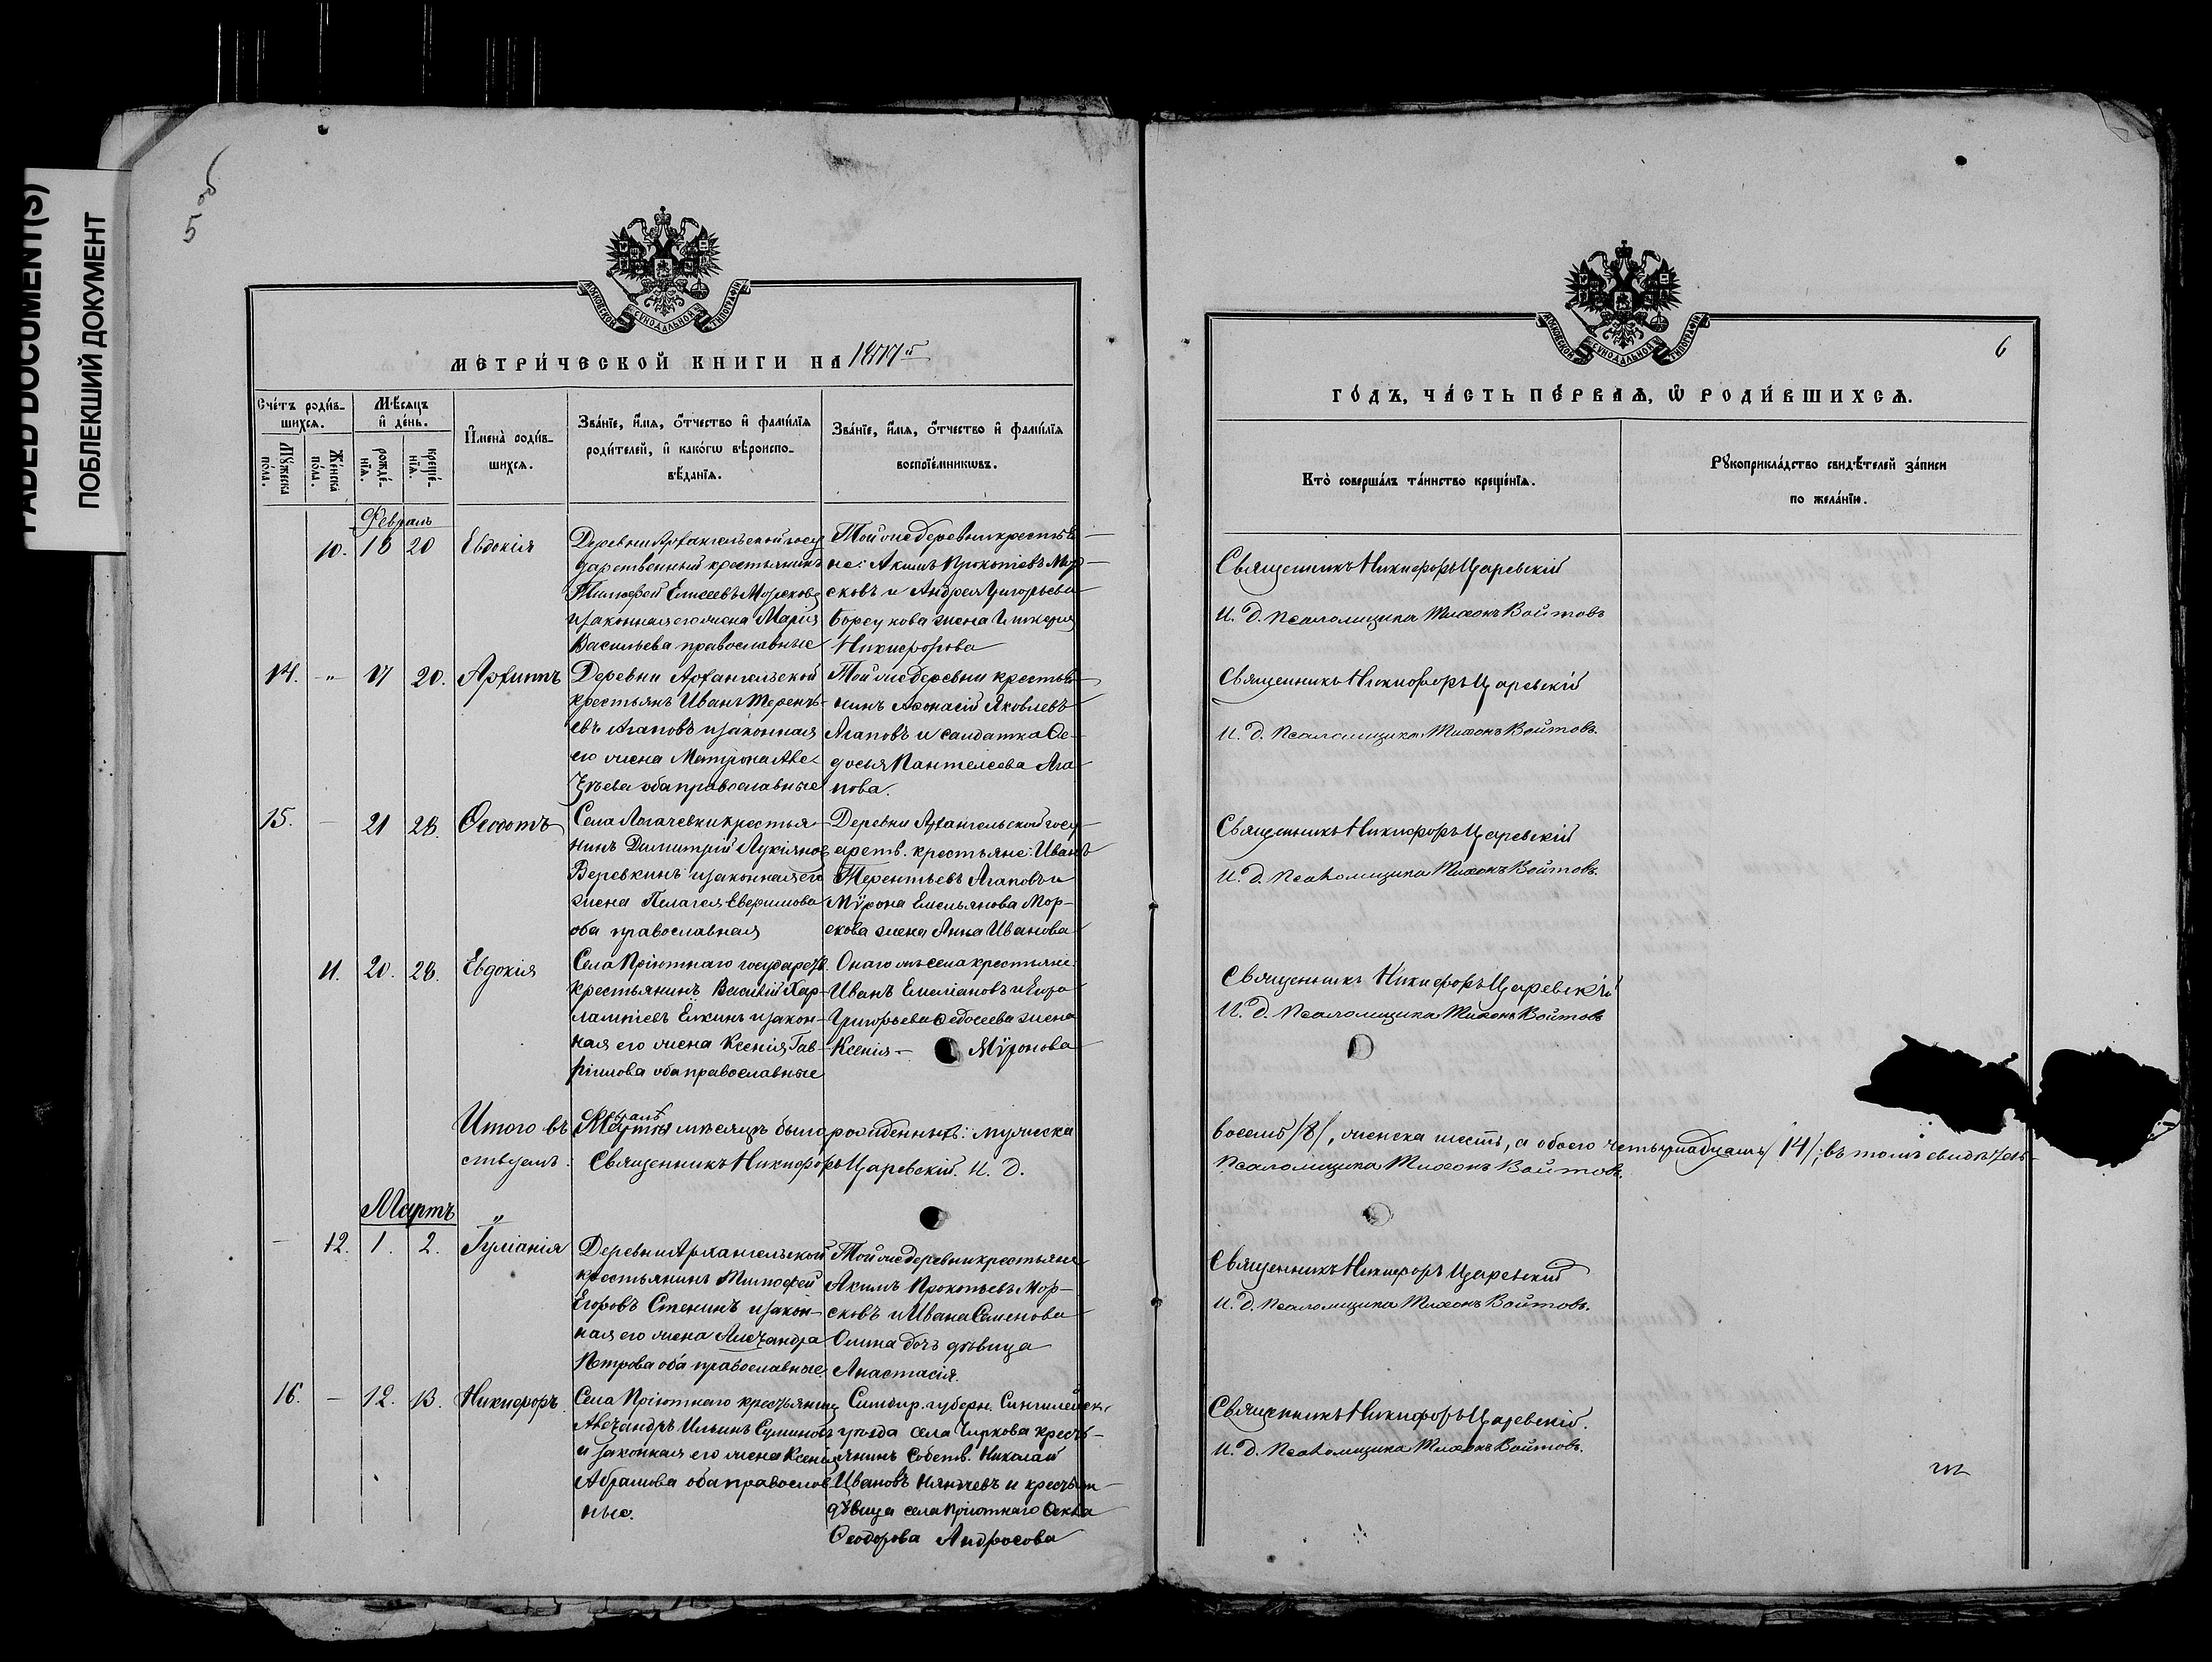 FADED DOCUMENT(S)
ПОБЛЕКШИЙ ДОКУМЕНТ
5 об
МОСКОВСКОЙ СѴНОДАЛЬНОЙ ТИПОГРАФІИ
МЕТРИ́ЧЕСКОЙ КНИГИ НА 1877 й
Сче́тъ роди́в-
шихсѧ.
Мѣ́сѧцъ
и҆ де́нь.
Мꙋжеска по́ла.
Же́нска по́ла.
рожде́-
нїѧ.
креще́-
нїѧ.
И҆мена̀ роди́в-
шихсѧ.
Зва́нїе, и҆́мѧ, ѻ҆́тчество и҆ фами́лїѧ
роди́телей, и҆ како́гѡ вѣроиспо-
вѣ́данїѧ.
Зва́нїе, и҆́мѧ, ѻ҆́тчество и҆ фами́лїѧ
воспрїе́мникѡвъ.
Февраль
10. 18 20 Евдокія
Деревни Архангельской госу
дарственный крестьянинъ
Тимофей Елисеевъ Морсковъ
и законная его жена Марія
Васильева православные
Той же деревни крестья-
не: Акимъ Прокопіевъ Мор-
сковъ и Андрея Григорьева
Борсукова жена Гликерія
Никифорова
14. -"- 17 20. Архиппъ
Деревни Архангельской
крестьянъ Иванъ Теренть-
евъ Агаповъ и законная
его жена Матрона Авс-
ѣева оба православные
Той же деревни крестья-
нинъ Афонасій Яковлевъ
Агаповъ и салдатка Ѳе-
досья Пантелеева Ага
пова.
15. - 21 28. Ѳеодотъ
Села Логачевки крестья-
нинъ Димитрій Лукіяновъ
Веревкинъ и законная его
жена Пелагея Евфимова
оба православная
Деревни Архангельской госу-
дарств. крестьяне: Иванъ
Терентьевъ Агаповъ и
Мѵрона Емельянова Мор-
скова жена Анна Иванова
11. 20. 28. Евдокія
Села Пріютнаго государств.
крестьянинъ Василій Хар-
лампіевъ Ёлкинъ и закон-
ная его жена Ксенія Гав-
ріилова оба православные
Онаго жъ села крестьяне:
Иванъ Емеліановъ и Егора
Григорьева Ѳедосеева жена
Ксенія — Мѵронова
Итого въ Февралѣ мѣсяцѣ было рожденныхъ: мужеска
ствуемъ. Священникъ Никифоръ Царевскій. И. Д.
Мартъ
- 12. 1. 2. Іуліанія
Деревни Архангельской
крестьянинъ Тимофей
Егоровъ Стенинъ и закон-
ная его жена Александра
Петрова оба православные.
Той же деревни крестьяне
Акимъ Прокопьевъ Мор-
сковъ и Ивана Семенова
Олина дочь дѣвица
Анастасія.
16. - 12. 13. Никифоръ.
Села Пріютнаго крестьянинъ
Александръ Ильинъ Суминовъ
и законная его жена Ксенія
Абрамова оба православ
ные.
Симбир. губерн. Сингилейск.
уѣзда села Чиркова кресть-
янинъ Собств. Николай
Ивановъ и крестьян
дѣвица села Пріютнаго Ѳекла
Ѳеодорова Андросова
6
МОСКОВСКОЙ СѴНОДАЛЬНОЙ ТИПОГРАФІИ
ГО́ДЪ, ЧА́СТЬ ПЕ́РВАѦ, Ѡ҆ РОДИ́ВШИХСѦ.
Кто̀ соверша́лъ та́инство креще́нїѧ.
Рꙋкоприкла́дство свидѣ́телей за́писи
по жела́нїю.
Священникъ Никифоръ Царевскій
И. д. псаломщика Тихонъ Войтовъ
Священникъ Никифоръ Царевскій
И. д. Псаломщика Тихонъ Войтовъ.
Священникъ Никифоръ Царевскій
И. д. псаломщика Тихонъ Войтовъ.
Священникъ Никифоръ Царевскій
И. д. Псаломщика Тихонъ Войтовъ
восемь /8/, женска шесть, а обоего четырнадцать /14/; въ томъ свидѣтель-
псаломщика Тихонъ Войтовъ.
Священникъ Никифоръ Царевскій
И. д. псаломщика Тихонъ Войтовъ.
Священникъ Никифоръ Царевскій.
И. д. псаломщика Тихонъ Войтовъ.